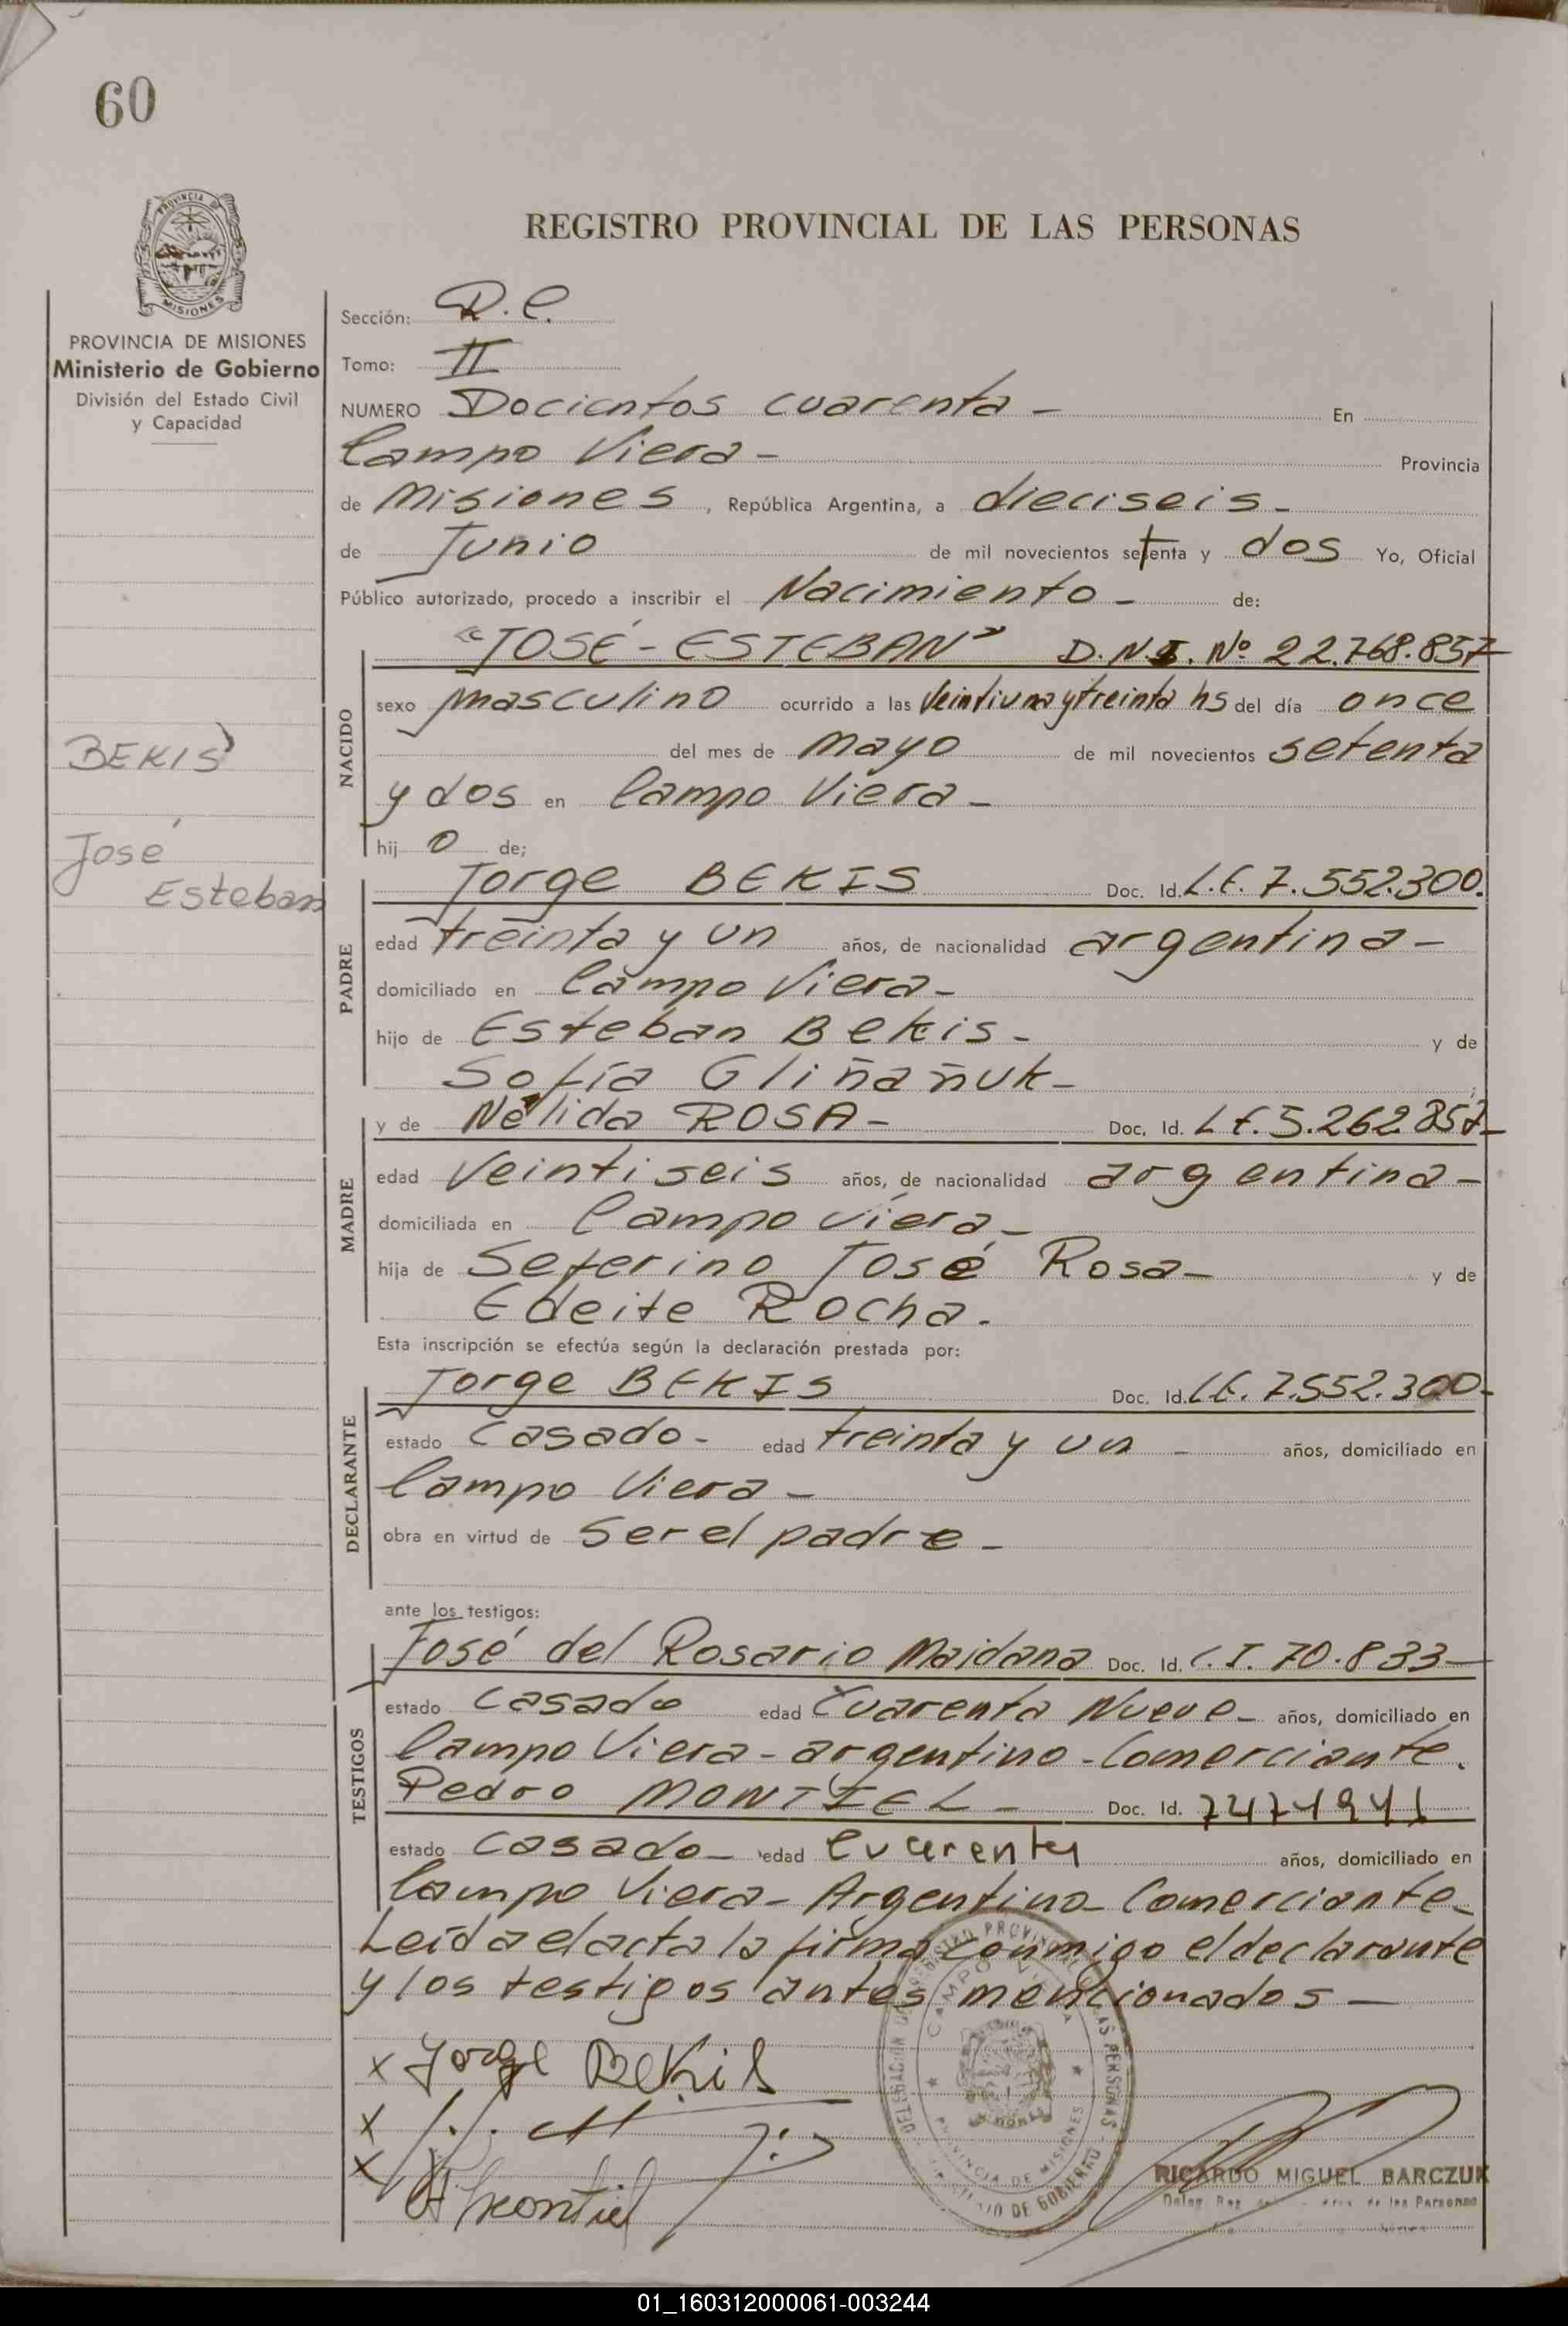 60
PROVINCIA DE MISIONES
Ministerio de Gobierno
División del Estado Civil
y Capacidad
BEKIS
José
Esteban
REGISTRO PROVINCIAL DE LAS PERSONAS
Sección: D.C.
Tomo: II
NUMERO Docientos cuarenta - En
Campo Viera - Provincia
de Misiones, República Argentina, a dieciseis -
de Junio de mil novecientos setenta y dos Yo, Oficial
Público autorizado, procedo a inscribir el Nacimiento - de:
"JOSÉ - ESTEBAN" D.N.I. Nº 22.768.857
NACIDO
sexo masculino ocurrido a las veintiuna y treinta hs del día once
del mes de mayo de mil novecientos setenta
y dos en Campo Viera -
hij o de;
Jorge BEKIS Doc. Id. L.E. 7.552.300.
PADRE
edad treinta y un años, de nacionalidad argentina -
domiciliado en Campo Viera -
hijo de Esteban Bekis - y de
Sofía Gliñañuk -
y de Nélida ROSA - Doc. Id. L E. 5.262.857 -
MADRE
edad veintiseis años, de nacionalidad argentina -
domiciliada en Campo viera -
hija de Seferino José Rosa - y de
Edeite Rocha.
Esta inscripción se efectúa según la declaración prestada por:
Jorge BEKIS Doc. Id. L.E. 7.552.300 -
DECLARANTE
estado Casado - edad treinta y un - años, domiciliado en
Campo Viera -
obra en virtud de Ser el padre -
ante los testigos:
José del Rosario Maidana Doc. Id. C.I. 70.833 -
TESTIGOS
estado Casado edad Cuarenta Nueve - años, domiciliado en
Campo Viera - argentino - Comerciante.
Pedro MONTIEL - Doc. Id. 7474941
estado Casado - edad Cuarenta años, domiciliado en
Campo Viera - Argentino - Comerciante -
Leída el acta la firma conmigo el declarante
y los testigos antes mencionados -
x Jorge Bekis
x
x Montiel
CAMPO VIERA
PROVINCIA DE MISIONES
RICARDO MIGUEL BARCZUK
01_160312000061-003244